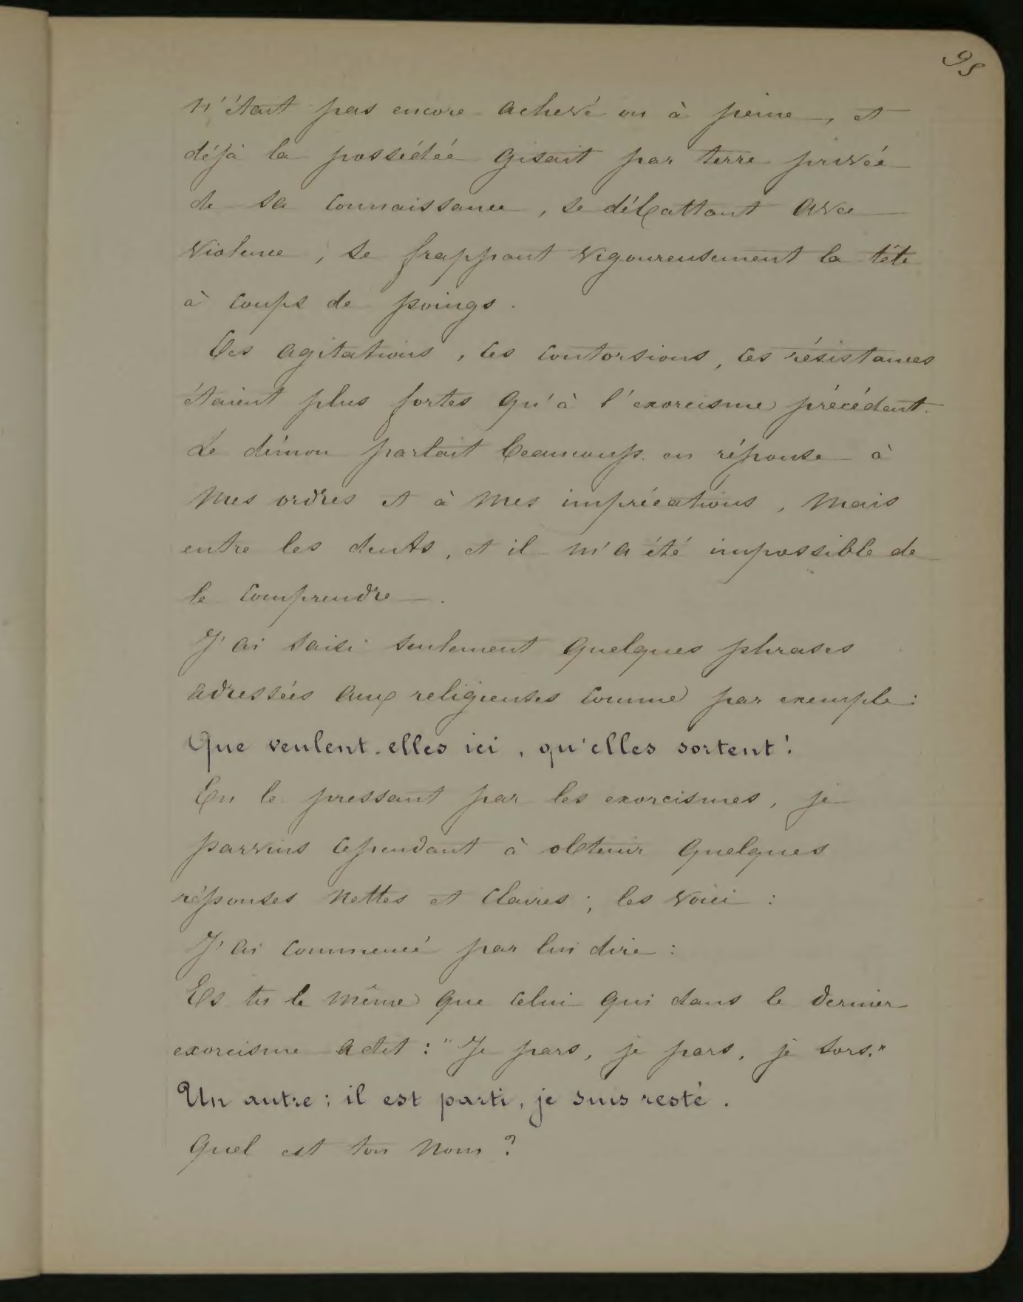 95
n'était pas encore achevé ou à peine, et
déjà la possédée gisait par terre privée
de sa connaissance, se débattant avec
violence, se frappant vigoureusement la tête
à coups de poings.
Ces agitations, ces contorsions, ces résistances
étaient plus fortes qu'à l'exorcisme précédent.
Le démon parlait beaucoup en réponse à
mes ordres et à mes imprécations, mais
entre les dents, et il m'a été impossible de
le comprendre.
J'ai saisi seulement quelques phrases
adressées aux religieuses comme par exemple:
Que veulent-elles ici, qu'elles sortent!
En le pressant par les exorcismes, je
parvins cependant à obtenir quelques
réponses nettes et claires; les voici:
J'ai commencé par lui dire:
Es tu le même que celui qui dans le dernier
exorcisme a dit: "Je pars, je pars, je sors."
Un autre; il est parti, je suis resté.
Quel est ton nom?